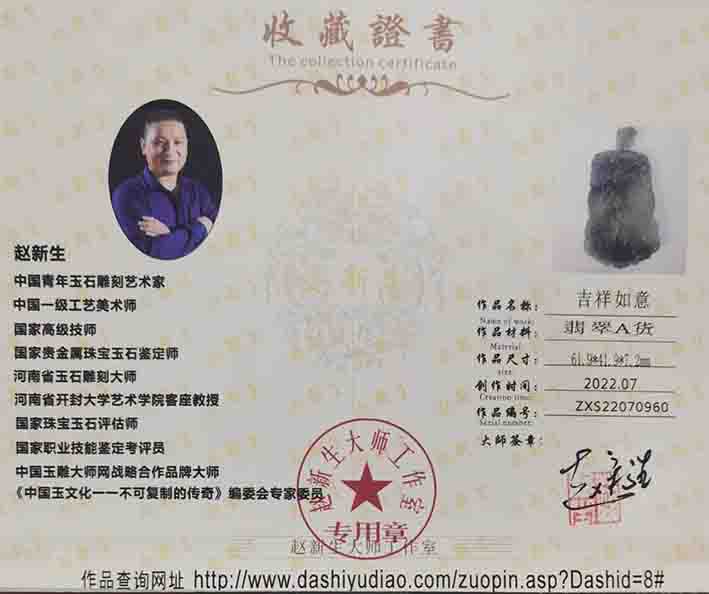 收藏證書
The collection certificate
赵新生
中国青年玉石雕刻艺术家
中国一级工艺美术师
国家高级技师
国家贵金属珠宝玉石鉴定师
河南省玉石雕刻大师
河南省开封大学艺术学院客座教授
国家珠宝玉石评估师
国家职业技能鉴定考评员
中国玉雕大师网战略合作品牌大师
《中国玉文化一一不可复制的传奇》编委会专家委员
作品名称: 吉祥如意
Name of work:
作品材料: 翡翠A货
Material:
作品尺寸: 61.9*41.9*7.2mm
size:
创作时间: 2022.07
Creation time:
作品编号: ZXS22070960
Serial number:
大师签章:
赵新生
赵新生大师工作室
专用章
赵新生大师工作室
作品查询网址 http://www.dashiyudiao.com/zuopin.asp?Dashid=8#